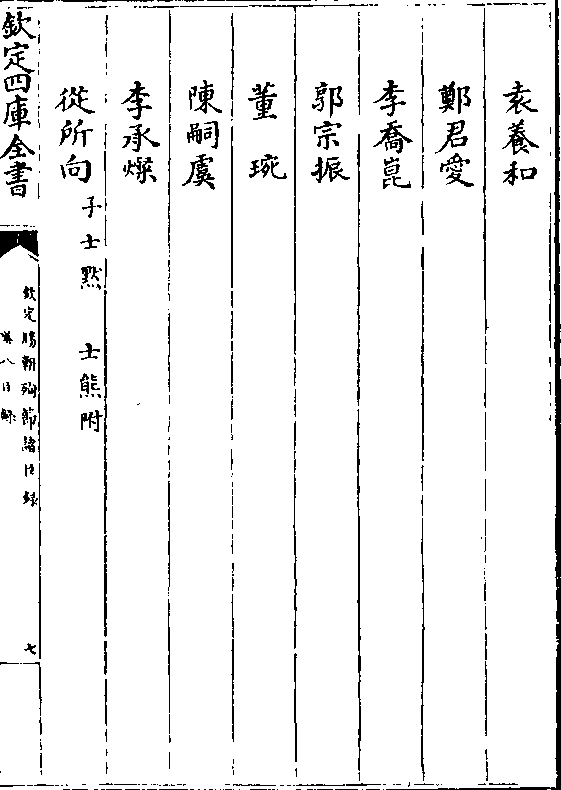 袁養和
鄭君愛
李喬崑
郭宗振
董琬
陳嗣虞
李承燦
從所向 子士黙 士熊附
欽定四庫全書
欽定勝朝殉節諸臣録
卷八目録
七